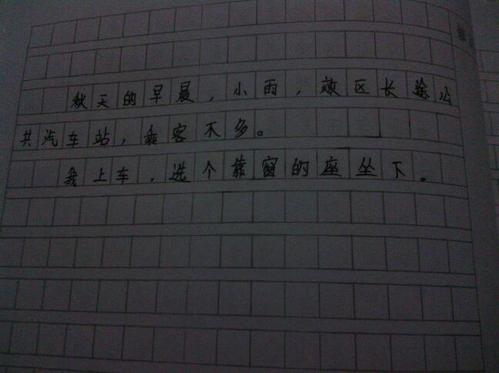 秋天的早晨，小雨，效区长途公
共汽车站，乘客不多。
我上车，选个靠窗的座坐下。